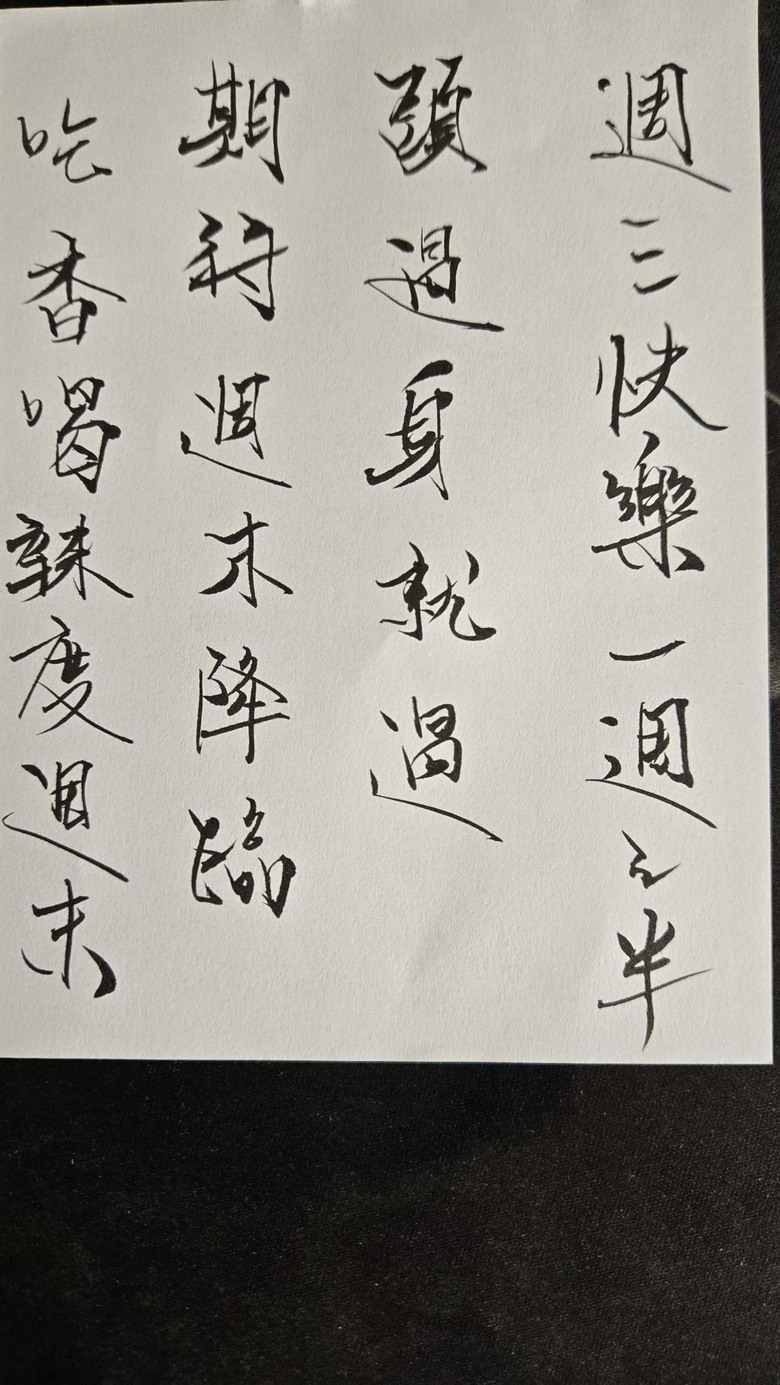 週三快樂一週之半
頭過身就過
期待週末降臨
吃香喝辣度週末